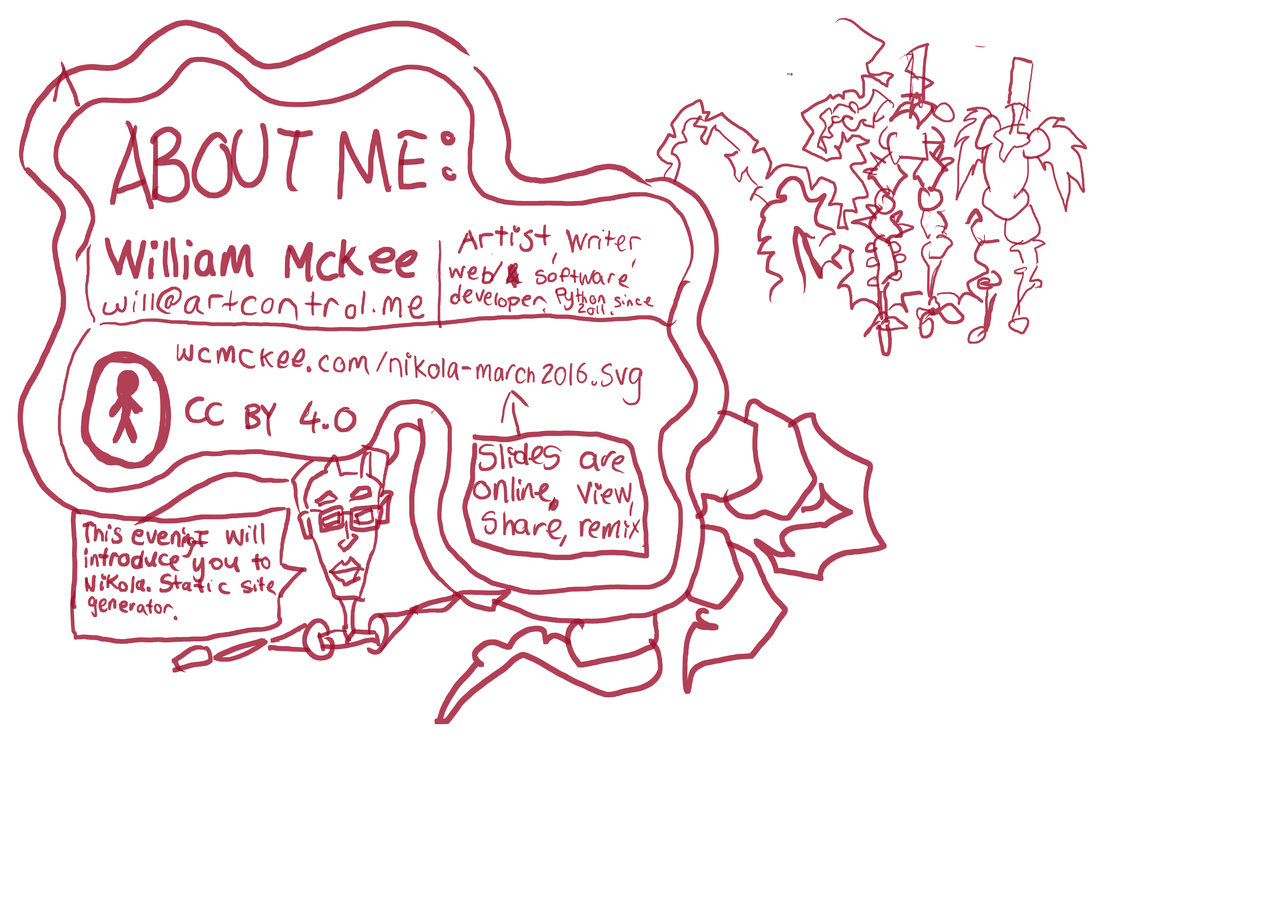 ABOUT ME:
William McKee
will@artcontrol.me
Artist, Writer,
web/& software
developer. Python since
2011.
wcmckee.com/nikola-march2016.svg
CC BY 4.0
Slides are
online, view,
share, remix
This evening I will
introduce you to
Nikola. Static site
generator.